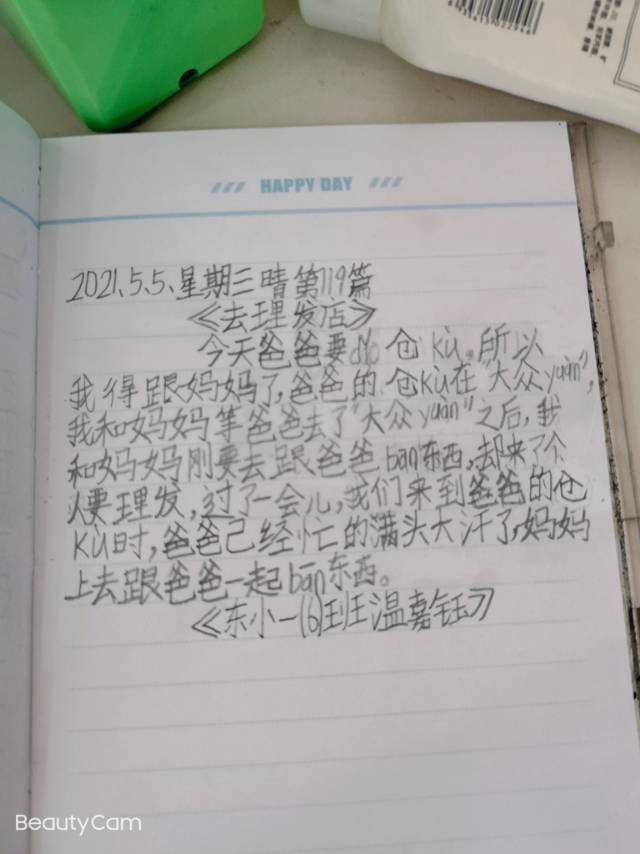 HAPPY DAY
2021、5.5、星期三晴第119篇
《去理发店》
今天爸爸要 仓kù。所以
我得跟妈妈了,爸爸的仓kù在"大众yuàn",
我和妈妈等爸爸去了"大众yuàn"之后,我
和妈妈刚要去跟爸爸bān东西,却来了个
人要理发,过了一会儿,我们来到爸爸的仓
kù时,爸爸己经忙的满头大汗了,妈妈
上去跟爸爸一起bān东西。
《东小一(6)班温嘉钰》
BeautyCam